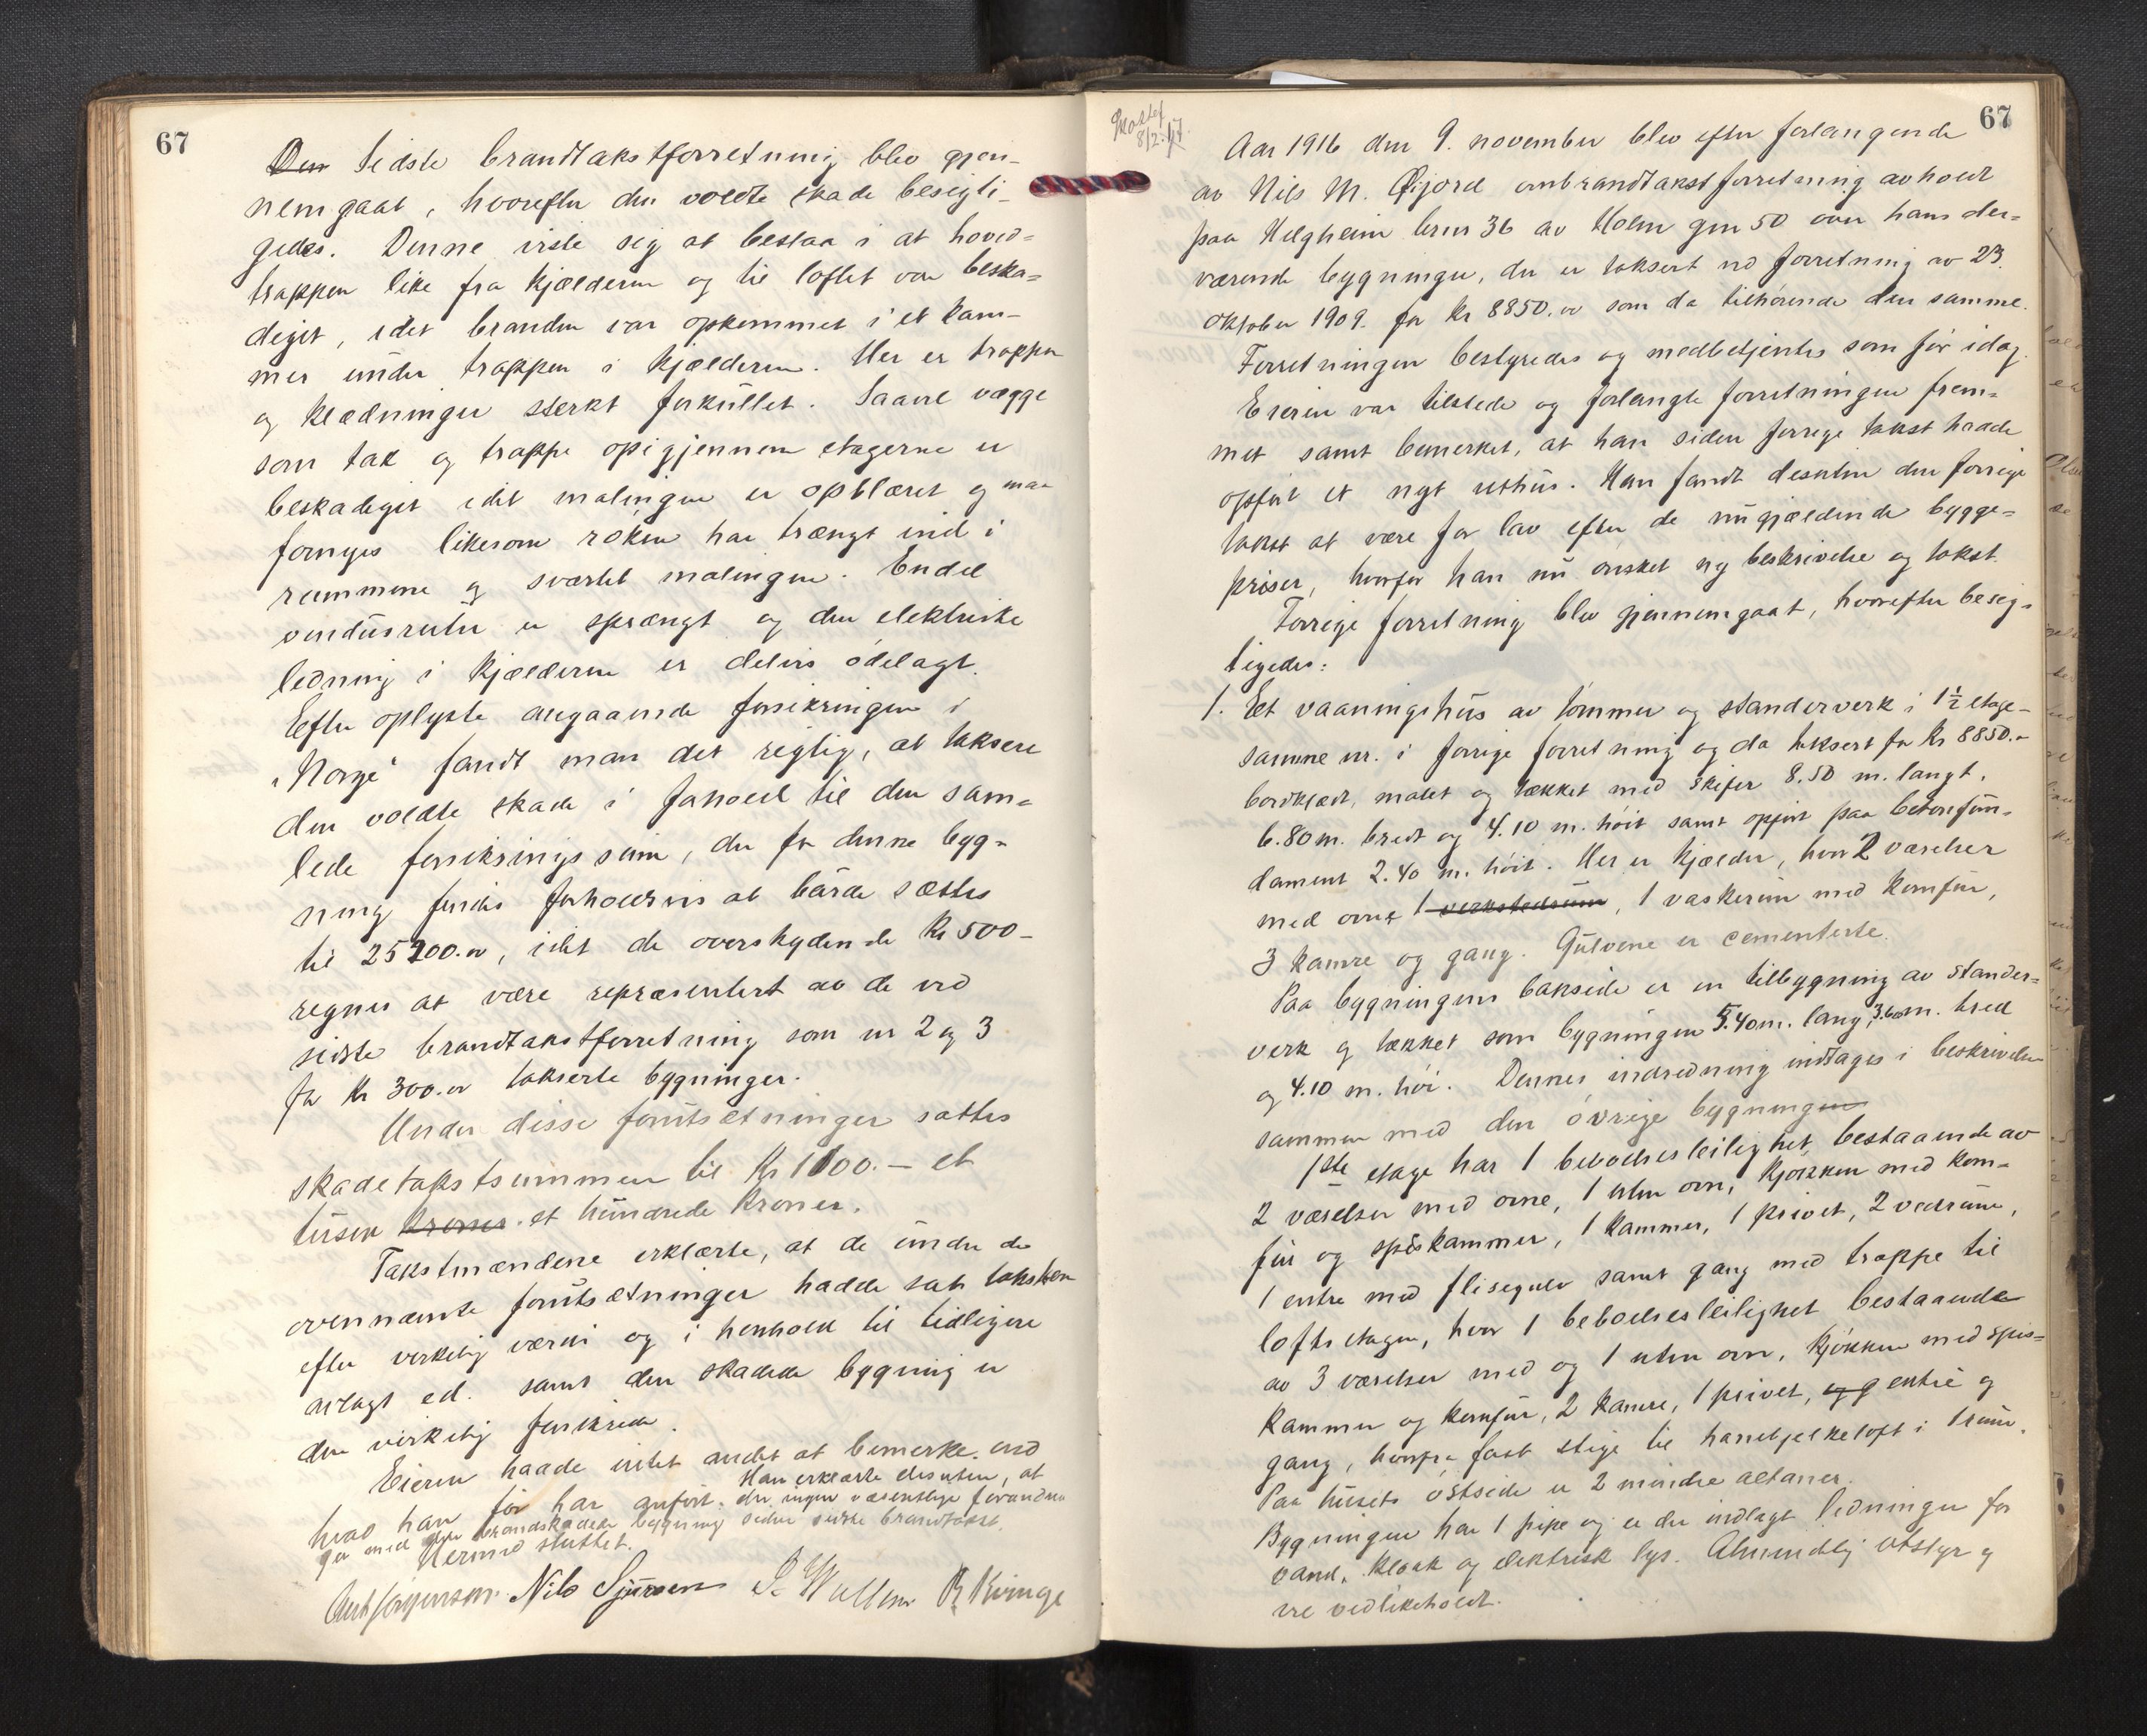 67
Den Sidste brandtakstforretning blev gjen-
nemgaat, hvorefter den voldte skade besigti-
gedes. Denne viste sig at bestaa i at hoved-
trappen like fra kjælderen og til loftet var beska-
diget, idet branden var opkommet i et kam-
mer under trappen i kjælderen. Her er trappen
og klædninger sterkt forkullet. Saavel vægge
som tak og trappe opigjennem etagerne er
beskadiget idet malingen er opblæret og maa
fornyes likesom røken har trængt ind i
rummene og sværtet malingen. Endel
vindusruter er sprængt og den elektriske
ledning i kjælderen er delvis ødelagt.
Efter oplyste angaaende forsikringen i
"Norge" fandt man det rigtig, at taksere
den voldte skade i forhold til den sam-
lede forsikringssum, der for denne byg-
ning findes forholdsvis at burde sættes
til 25200.00, idet de overskydende Kr 500-
regnes at være repræsentert av de ved
sidste brandtakstforretning som nr 2 og 3
for Kr 300.00 takserte bygninger.
Under disse forutsætninger sattes
skadetakstsummen til Kr 1100.- et
tusen kroner et hundrede kroner.
Takstmændene erklærte, at de under de
ovennævnte forutsætninger hadde sat taksten
efter virkelig værdi og i henhold til tidligere
avlagt ed. samt den skadede bygning er
den virkelig forsikrede.
Eieren hadde intet andet at bemerke end
hvad han før har anført. Han erklærte desuten, at
der ingen væsentlige forandrin
ger med den brandskadede bygning siden sidste brandtakst.
Hermed sluttet.
Nils Sjursen R Kvinge
67
8/2.17.
Aar 1916 den 9. november blev efter forlangende
av Nils M. Øijord ombrandtakstforretning avholdt
paa Helgheim brnr 36 av Holen gnr 50 over hans der-
værende bygninger, der er taksert ved forretning av 23.
oktober 1909. for Kr 8850.00 som da tilhørende den samme.
Forretningen bestyredes og medbetjentes som før idag.
Eieren var tilstede og forlangte forretningen frem-
met samt bemerket, at han siden forrige takst havde
opført et nyt uthus. Han fandt desuten den forrige
takst at være for lav efter de nugjældende bygge-
priser, hvorfor han nu ønsket ny beskrivelse og takst.
Forrige forretning blev gjennemgaat, hvorefter besig-
tigedes:
1. Et vaaningshus av tømmer og standerverk i 1½ etage-
samme nr. i forrige forretning og da taksert for Kr 8850.-
bordklædt, malet og tækket med skifer 8.50 m. langt,
6.80 m. bredt og 4.10 m. høit samt opført paa betonfun-
dament 2.40 m. høit. Her er kjælder, hvor 2 værelser
med ovne, 1 verkstedsrum, 1 vaskerum med komfur,
3 kamre og gang. Gulvene er cementerte.
Paa bygningens bakside er en tilbygning av stander-
verk og tækket som bygningen 5.40 m. lang, 3.60 m. bred
og 4.10 m. høi. Dennes indredning indtages i beskrivelsen
sammen med den øvrige bygningen
1ste etage har 1 beboelsesleilighet, bestaaende av
2 værelser med ovne, 1 uten ovn, kjøkken med kom-
fur og spiskammer, 1 kammer, 1 privet, 2 vedrum,
1 entre med flisegulv samt gang med trappe til
loftsetagen, hvor 1 beboelsesleilighet bestaaende
av 3 værelser med og 1 uten ovn, kjøkken med spis-
kammer og komfur, 2 kamre, 1 privet, og entré og
gang, hvorfra fast stige til hanebjelkeloft i 1 rum.
Paa husets østside er 2 mindre altaner.
Bygningen har 1 pipe og er der indlagt ledninger for
vand, kloak og elektrisk lys. Almindelig utstyr og
vel vedlikeholdt.